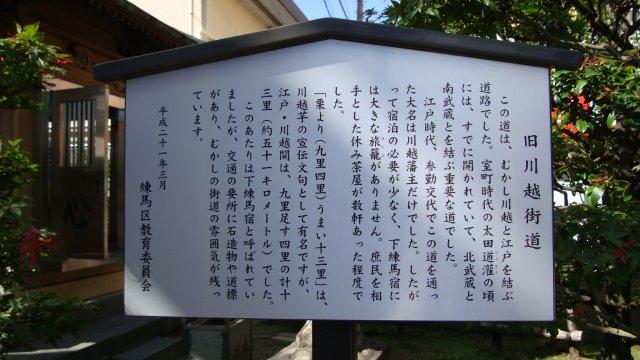 旧川越街道
この道は、むかし川越と江戸を結ぶ
道路でした。室町時代の太田道灌の頃
には、すでに開かれていて、北武蔵と
南武蔵とを結ぶ重要な道でした。
江戸時代、参勤交代でこの道を通っ
た大名は川越藩主だけでした。したが
って宿泊の必要が少なく、下練馬宿に
は大きな旅籠がありません。庶民を相
手とした休み茶屋が数軒あった程度で
した。
「栗より（九里四里）うまい十三里」は、
川越芋の宣伝文句として有名ですが、
江戸・川越間は、九里足す四里の計十
三里（約五十一キロメートル）でした。
このあたりは下練馬宿と呼ばれてい
ましたが、交通の要所に石造物や道標
があり、むかしの街道の雰囲気が残っ
ています。
平成二十一年三月
練馬区教育委員会
心